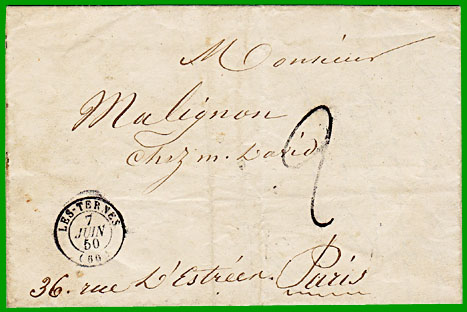 Monsieur
Malignon
Chez m. David
2
LES-TERNES
7
JUIN
50
(60)
36. rue D'Estrées. Paris